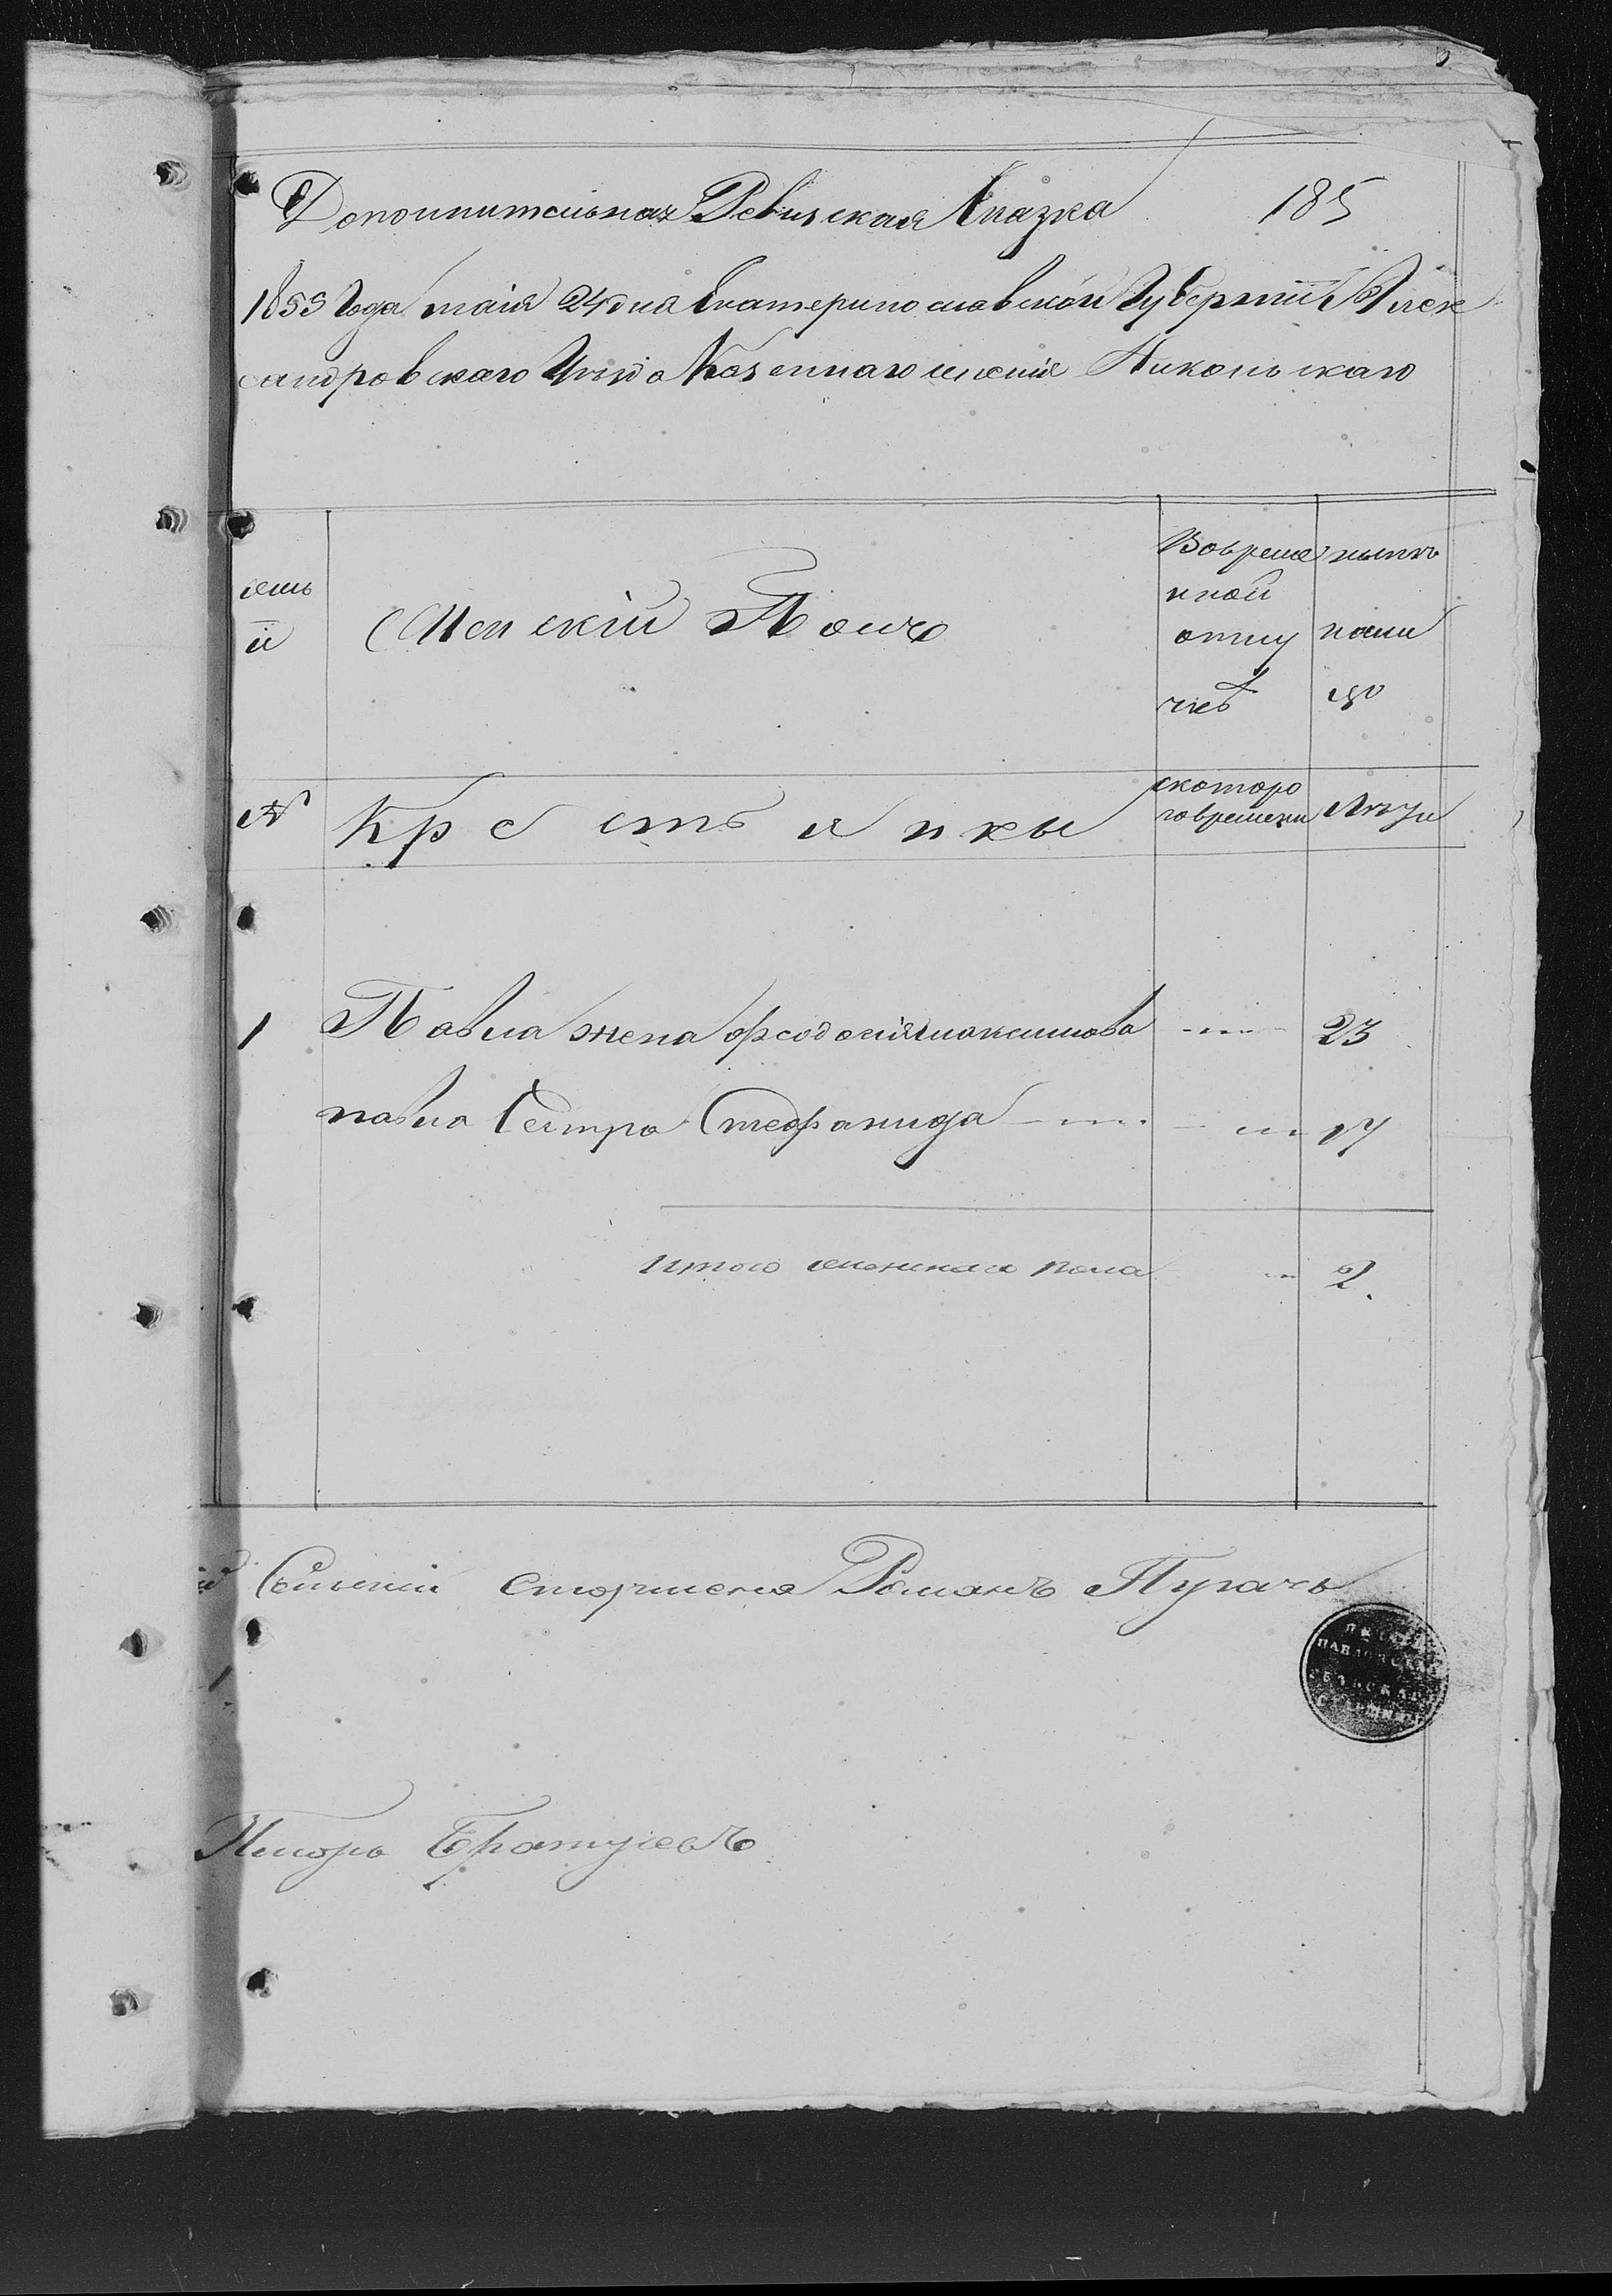 Дополнительная Ревизская Сказка 185
1855 Года маія 24 дня Екатеринославской Губерніи Алек
сандровскаго Уезда Казеннаго селенія Никольскаго
Женскій Полъ
Вовреме
нной
отлу
чке
нынѣ
нали
цо
семь
и
№
Крестьянки
скоторо
говремени
Лѣта
1 Павла жена Феодосія максимова 23
павла Сестра Стефанида 17
Итого женскаго пола 2.
Сельскій старшина Романъ Пугачь
Писарь Братусевъ